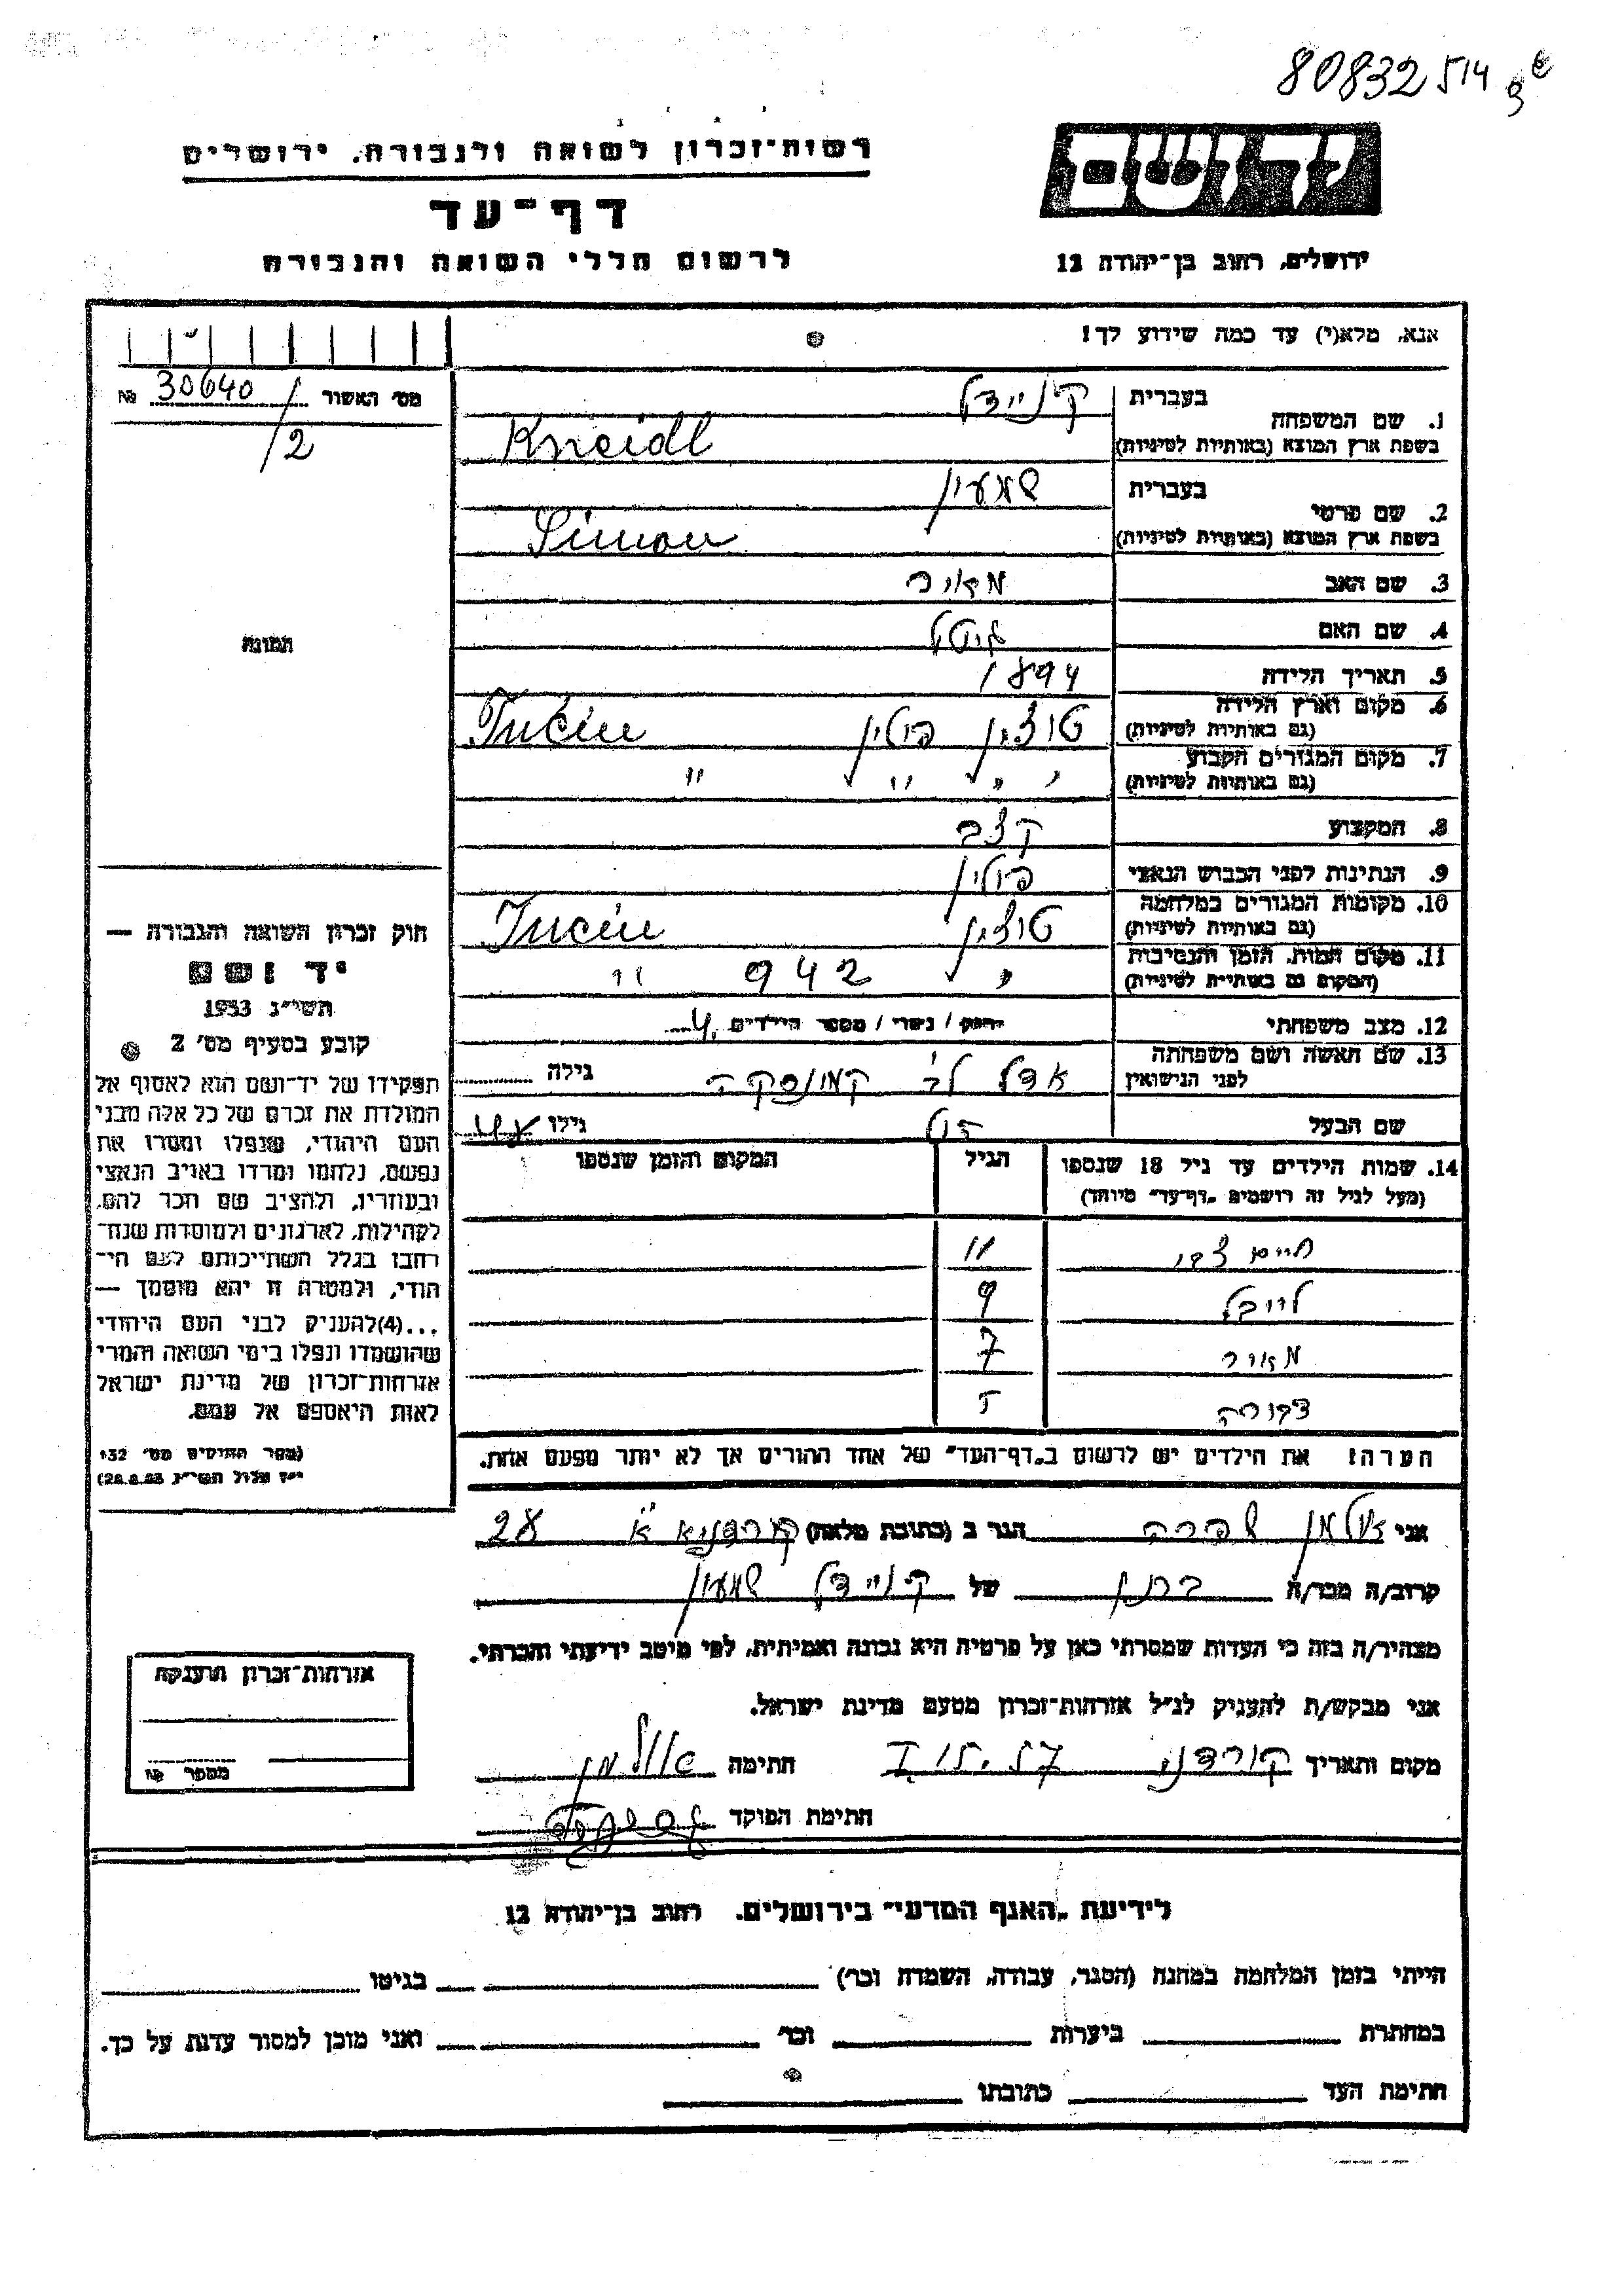 80832 514
רשות־זכרון לשואה ולגבורה, ירושלים
יד ושם
דף־עד
לרשום חללי השואה והגבורה
ירושלים, רחוב בן־יהודה 12
אנא, מלא(י) עד כמה שידוע לך!
מס׳ האשור 30640 №
/2
1. שם המשפחה
בעברית קניידל
בשפת ארץ המוצא (באותיות לטיניות) Kneidl
2. שם פרטי
בעברית שמעון
בשפת ארץ המוצא (באותיות לטיניות) Simon
3. שם האב מאיר
4. שם האם גיטל
5. תאריך הלידה 1894
6. מקום וארץ הלידה טוצין פולין Tucin
(גם באותיות לטיניות)
7. מקום המגורים הקבוע " " " "
(גם באותיות לטיניות)
8. המקצוע קצב
9. הנתינות לפני הכבוש הנאצי פולין
10. מקומות המגורים במלחמה טוצין Tucin
(גם באותיות לטיניות)
11. מקום המות, הזמן והנסיבות " 942 "
(המקום גם באותיות לטיניות)
12. מצב משפחתי רווק / נשוי / מספר הילדים 4
13. שם האשה ושם משפחתה אדל לב׳ קמינסקה גילה
לפני הנישואין
שם הבעל גילו
14. שמות הילדים עד גיל 18 שנספו הגיל המקום והזמן שנספו
(מעל לגיל זה רושמים „דף־עד״ מיוחד)
חיים צבי 11
לייבל 9
מאיר 7
דבורה 5
הערה! את הילדים יש לרשום ב„דף־העד״ של אחד ההורים אך לא יותר מפעם אחת.
תמונה
חוק זכרון השואה והגבורה —
יד ושם
תשי״ג 1953
קובע בסעיף מס׳ 2
תפקידו של יד־ושם הוא לאסוף אל
המולדת את זכרם של כל אלה מבני
העם היהודי, שנפלו ומסרו את
נפשם, נלחמו ומרדו באויב הנאצי
ובעוזריו, ולהציב שם וזכר להם,
לקהילות, לארגונים ולמוסדות שנח־
רבו בגלל השתייכותם לעם הי־
הודי, ולמטרה זו יהא מוסמך —
...(4) להעניק לבני העם היהודי
שהושמדו ונפלו בימי השואה והמרי
אזרחות־זכרון של מדינת ישראל
לאות היאספם אל עמם.
(ספר החוקים מס׳ 132
י״ז אלול תשי״ג 28.8.53)
אני שפרה הגר ב (כתובת מלאה) 28
קרוב/ה מכר/ה של קניידל שמעון
מצהיר/ה בזה כי העדות שמסרתי כאן על פרטיה היא נכונה ואמיתית, לפי מיטב ידיעתי והכרתי.
אני מבקש/ת להעניק לנ״ל אזרחות־זכרון מטעם מדינת ישראל.
מקום ותאריך חתימה
חתימת הפוקד
אזרחות־זכרון הוענקה
מספר №
לידיעת „האגף המדעי״ בירושלים. רחוב בן־יהודה 12
הייתי בזמן המלחמה במחנה (הסגר, עבודה, השמדה וכר׳) בגיטו
במחתרת ביערות וכר׳ ואני מוכן למסור עדות על כך.
חתימת העד כתובתו